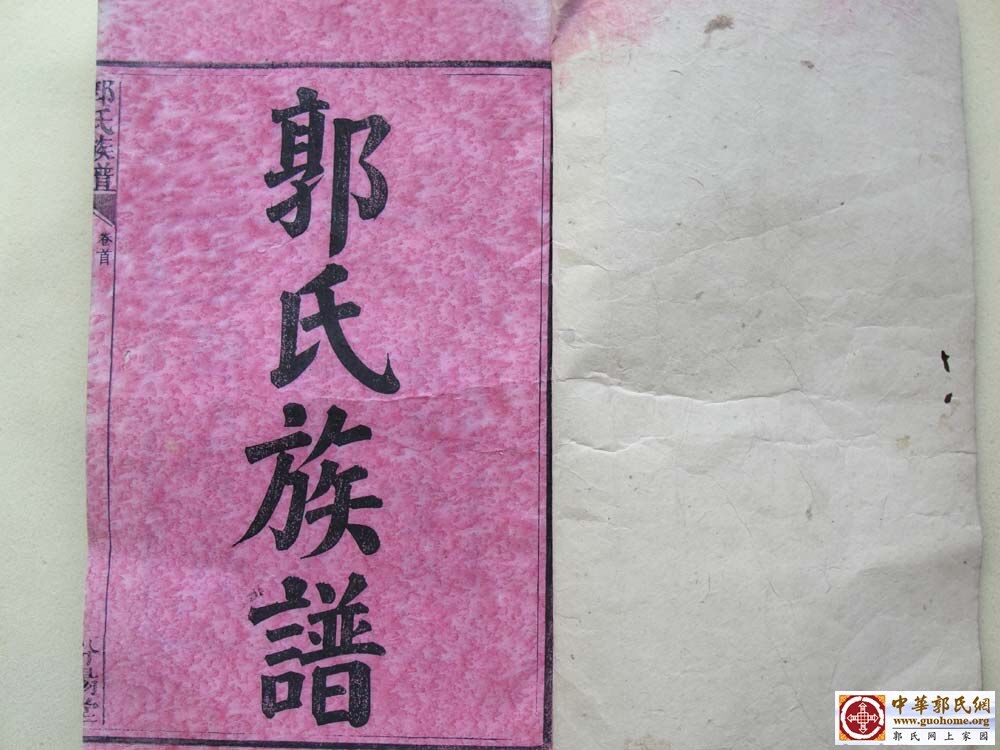 郭氏族譜
郭氏族譜
卷首
中華郭氏網
www.guohome.org
郭氏网上家园